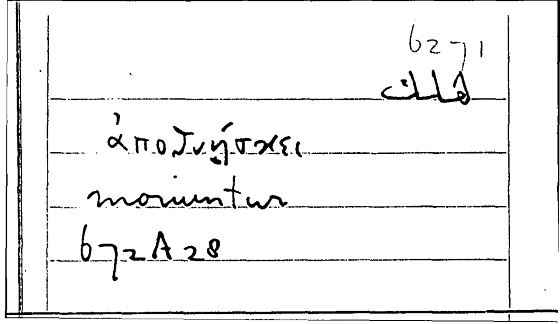 6271
ἀποθνῄσκει
moriuntur
672A28